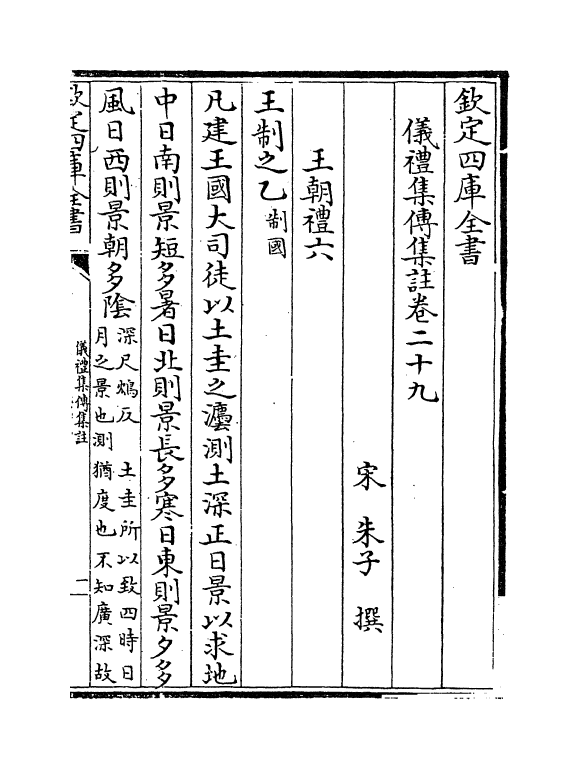 欽定四庫全書
儀禮集傳集註卷二十九
宋 朱子 撰
王朝禮六
王制之乙制國
凡建王國大司徒以土圭之灋測土深正日景以求地
中日南則景短多暑日北則景長多寒日東則景夕多
風日西則景朝多隂深尺鴆反 土圭所以致四時日
月之景也測 猶度也不知廣深故
欽定四庫全書
儀禮集傳集註